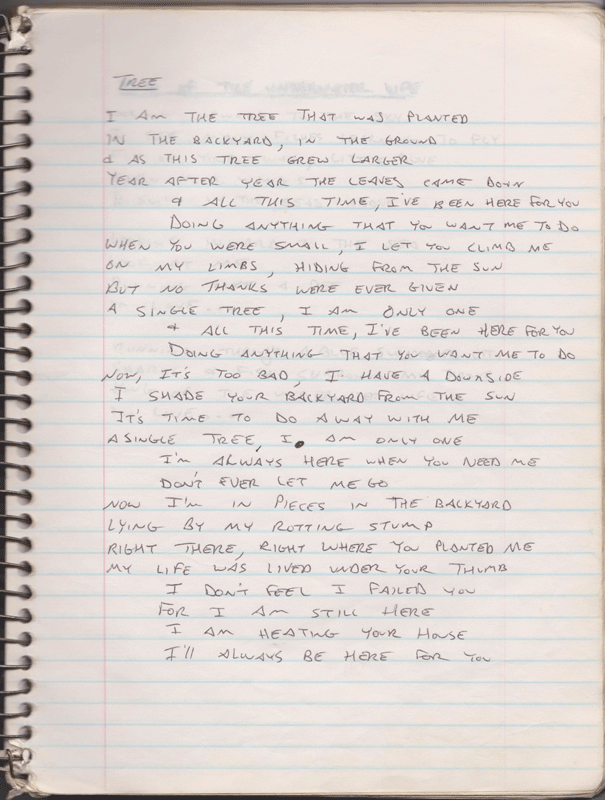 TREE
I AM THE TREE THAT WAS PLANTED
IN THE BACKYARD, IN THE GROUND
& AS THIS TREE GREW LARGER
YEAR AFTER YEAR THE LEAVES CAME DOWN
& ALL THIS TIME, I'VE BEEN HERE FOR YOU
DOING ANYTHING THAT YOU WANT ME TO DO
WHEN YOU WERE SMALL, I LET YOU CLIMB ME
ON MY LIMBS, HIDING FROM THE SUN
BUT NO THANKS WERE EVER GIVEN
A SINGLE TREE, I AM ONLY ONE
& ALL THIS TIME, I'VE BEEN HERE FOR YOU
DOING ANYTHING THAT YOU WANT ME TO DO
NOW, IT'S TOO BAD, I HAVE A DOWNSIDE
I SHADE YOUR BACKYARD FROM THE SUN
IT'S TIME TO DO AWAY WITH ME
A SINGLE TREE, I AM ONLY ONE
I'M ALWAYS HERE WHEN YOU NEED ME
DON'T EVER LET ME GO
NOW I'M IN PIECES IN THE BACKYARD
LYING BY MY ROTTING STUMP
RIGHT THERE, RIGHT WHERE YOU PLANTED ME
MY LIFE WAS LIVED UNDER YOUR THUMB
I DON'T FEEL I FAILED YOU
FOR I AM STILL HERE
I AM HEATING YOUR HOUSE
I'll ALWAYS BE HERE FOR YOU